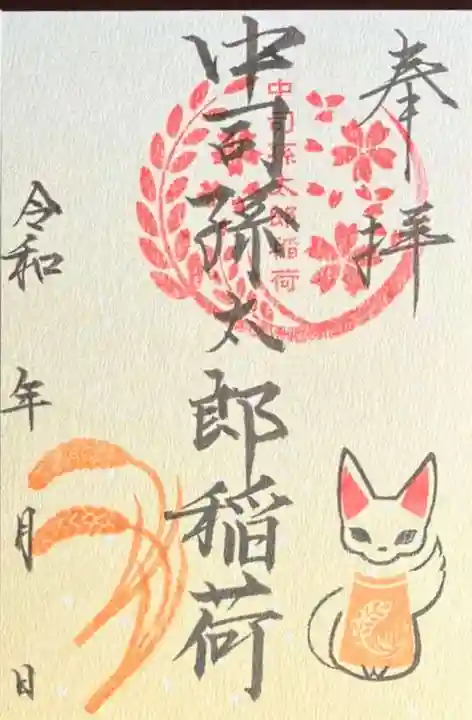 奉拝
中司孫太郎稲荷
中司孫太郎稲荷
令和 年 月 日